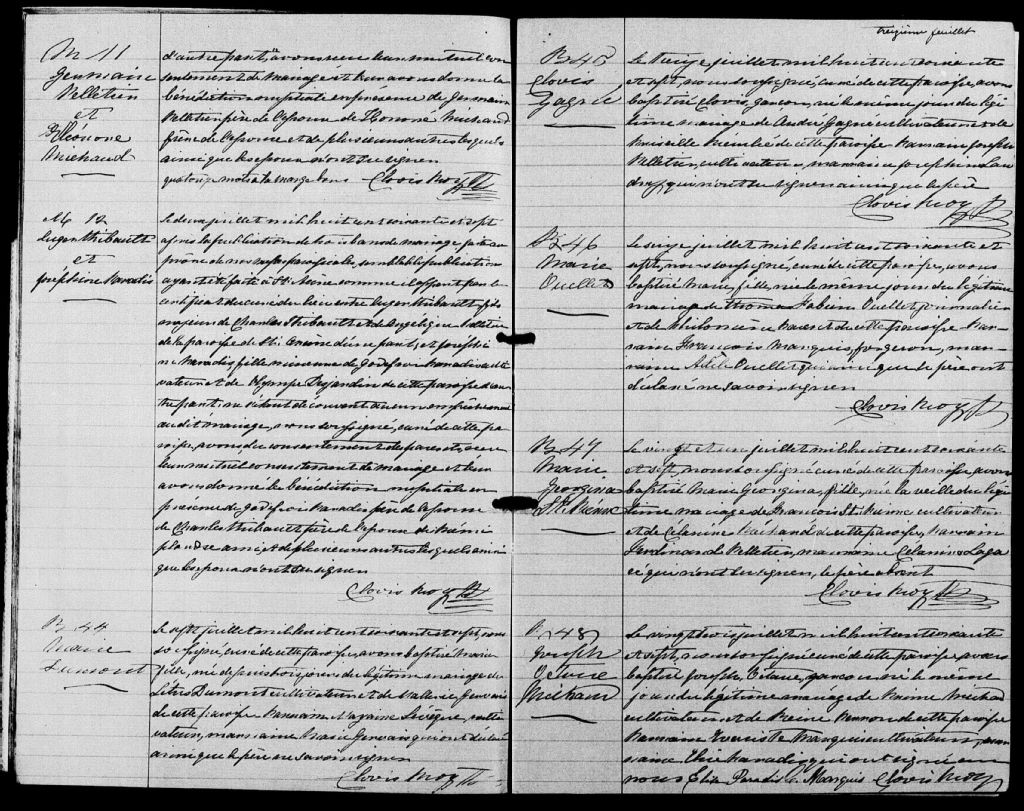 M 11
Germain
Pelletier
et
Eléonore
Michaud
d'autre part, avons reçu leur mutuel con
sentement de mariage et leur avons donné la
bénédiction nuptiale en présence de Germain
Pelletier père de l'époux de Honoré Michaud
frère de l'épouse et de plusieurs autres lesquels
ainsi que les époux n'ont su signer
quatorze mots à la marge bons Clovis Roy Ptre
M 12
Eugène Thibault
et
Joséphine Paradis
Le deux juillet mil huit cent soixante et sept
après la publication de trois bans de mariage faite au
prône de nos messes paroissiales, semblable publication
ayant été faite à St Anne comme il appert par le
certificat du curé du lieu entre Eugène Thibault fils
majeur de Charles Thibault et de Angélique Pelletier
de la paroisse de d'une part; et Joséphi
ne Paradis fille mineure de Godfroi Paradis culti
vateur et de Olympe Desjardins de cette paroisse d'au
tre part; ne s'étant découvert aucun empêchement
au dit mariage, nous soussigné, curé de cette pa
roisse, avons, du consentement des parents, reçu
leur mutuel consentement de mariage et leur
avons donné la bénédiction nuptiale en
présence de Godefroi Paradis père de l'épouse
de Charles Thibault père de l'époux de Rémi
ami et de plusieurs autres lesquels ainsi
que les époux n'ont su signer
Clovis Roy Ptre
B 44
Marie
Dumont
Le sept juillet mil huit cent soixante et sept, nous
soussigné, curé de cette paroisse, avons baptisé Marie
fille, née depuis trois jours du légitime mariage de
Dumont cultivateur et de Valérie Gervais
de cette paroisse Parrain Nazaire Lévêque, culti
vateur, marraine Marie Gervais qui ont déclaré
ainsi que le père ne savoir signer
Clovis Roy Ptre
treizième feuillet
B 45
Clovis
Gagné
Le treize juillet mil huit cent soixante
et sept, nous soussigné, curé de cette paroisse, avons
baptisé Clovis, garçon, né le même jour du légi
time mariage de André Gagné cultivateur et de
de cette paroisse Parrain Joseph
Pelletier, cultivateur, marraine Joséphine
qui n'ont su signer ainsi que le père
Clovis Roy Ptre
B 46
Marie
Ouellet
Le seize juillet mil huit cent soixante et
sept, nous soussigné, curé de cette paroisse, avons
baptisé Marie, fille, née le même jour du légitime
mariage de Thomas Fabien Ouellet journalier
et de Philomène de cette paroisse Par
rain François Marquis, forgeron, mar
raine Adèle Ouellet qui ainsi que le père ont
déclaré ne savoir signer
Clovis Roy Ptre
B 47
Marie
Georgina
St Pierre
Le vingt et un juillet mil huit cent soixante
et sept nous soussigné curé de cette paroisse, avons
baptisé Marie Georgina, fille, née la veille du légi
time mariage de François St Pierre cultivateur
et de Célanire de cette paroisse, Parrain
Ferdinand Pelletier, marraine Célanire Laga
cé qui n'ont su signer, le père absent
Clovis Roy Ptre
B 48
Joseph
Octave
Michaud
Le vingt trois juillet mil huit cent soixante
et sept, nous soussigné curé de cette paroisse, avons
baptisé Joseph Octave, garçon, né le même
jour du légitime mariage de Michaud
cultivateur et de Reine de cette paroisse
Parrain Evariste Marquis cultivateur, mar
raine Elise Paradis qui ont signé avec
nous Elise Paradis E. Marquis Clovis Roy